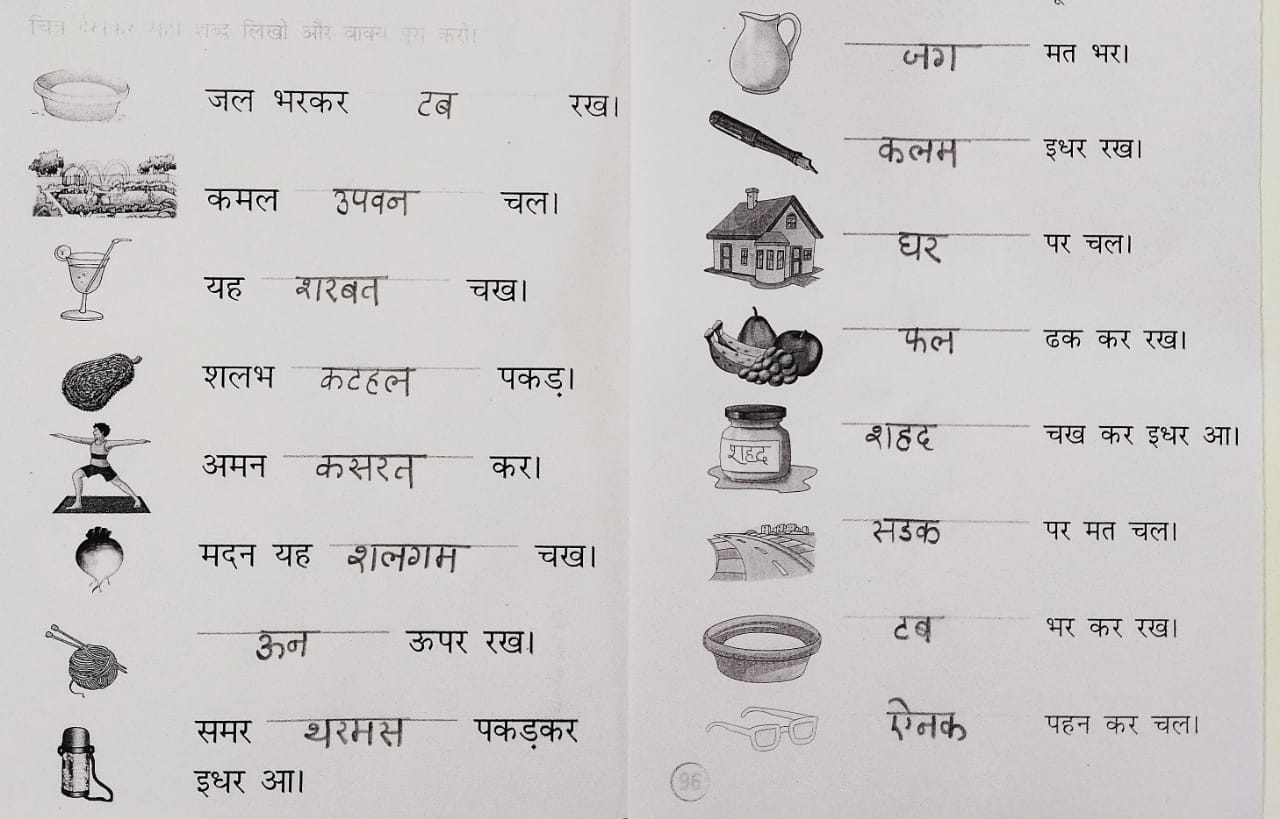 चित्र देखकर सही शब्द लिखो और वाक्य पूरा करो।
जल भरकर टब रख।
कमल उपवन चल।
यह शरबत चख।
शलभ कटहल पकड़।
अमन कसरत कर।
मदन यह शलगम चख।
ऊन ऊपर रख।
समर थरमस पकड़कर
इधर आ।
जग मत भर।
कलम इधर रख।
घर पर चल।
फल ढक कर रख।
शहद
शहद चख कर इधर आ।
सडक पर मत चल।
टब भर कर रख।
ऐनक पहन कर चल।
96